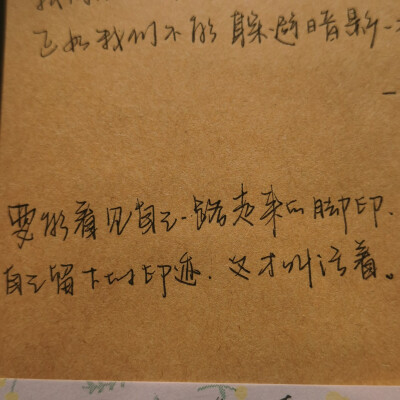 正如我们不能躲避暗影一
要能看见自己一路走来的脚印.
自己留下的印迹.这才叫活着。